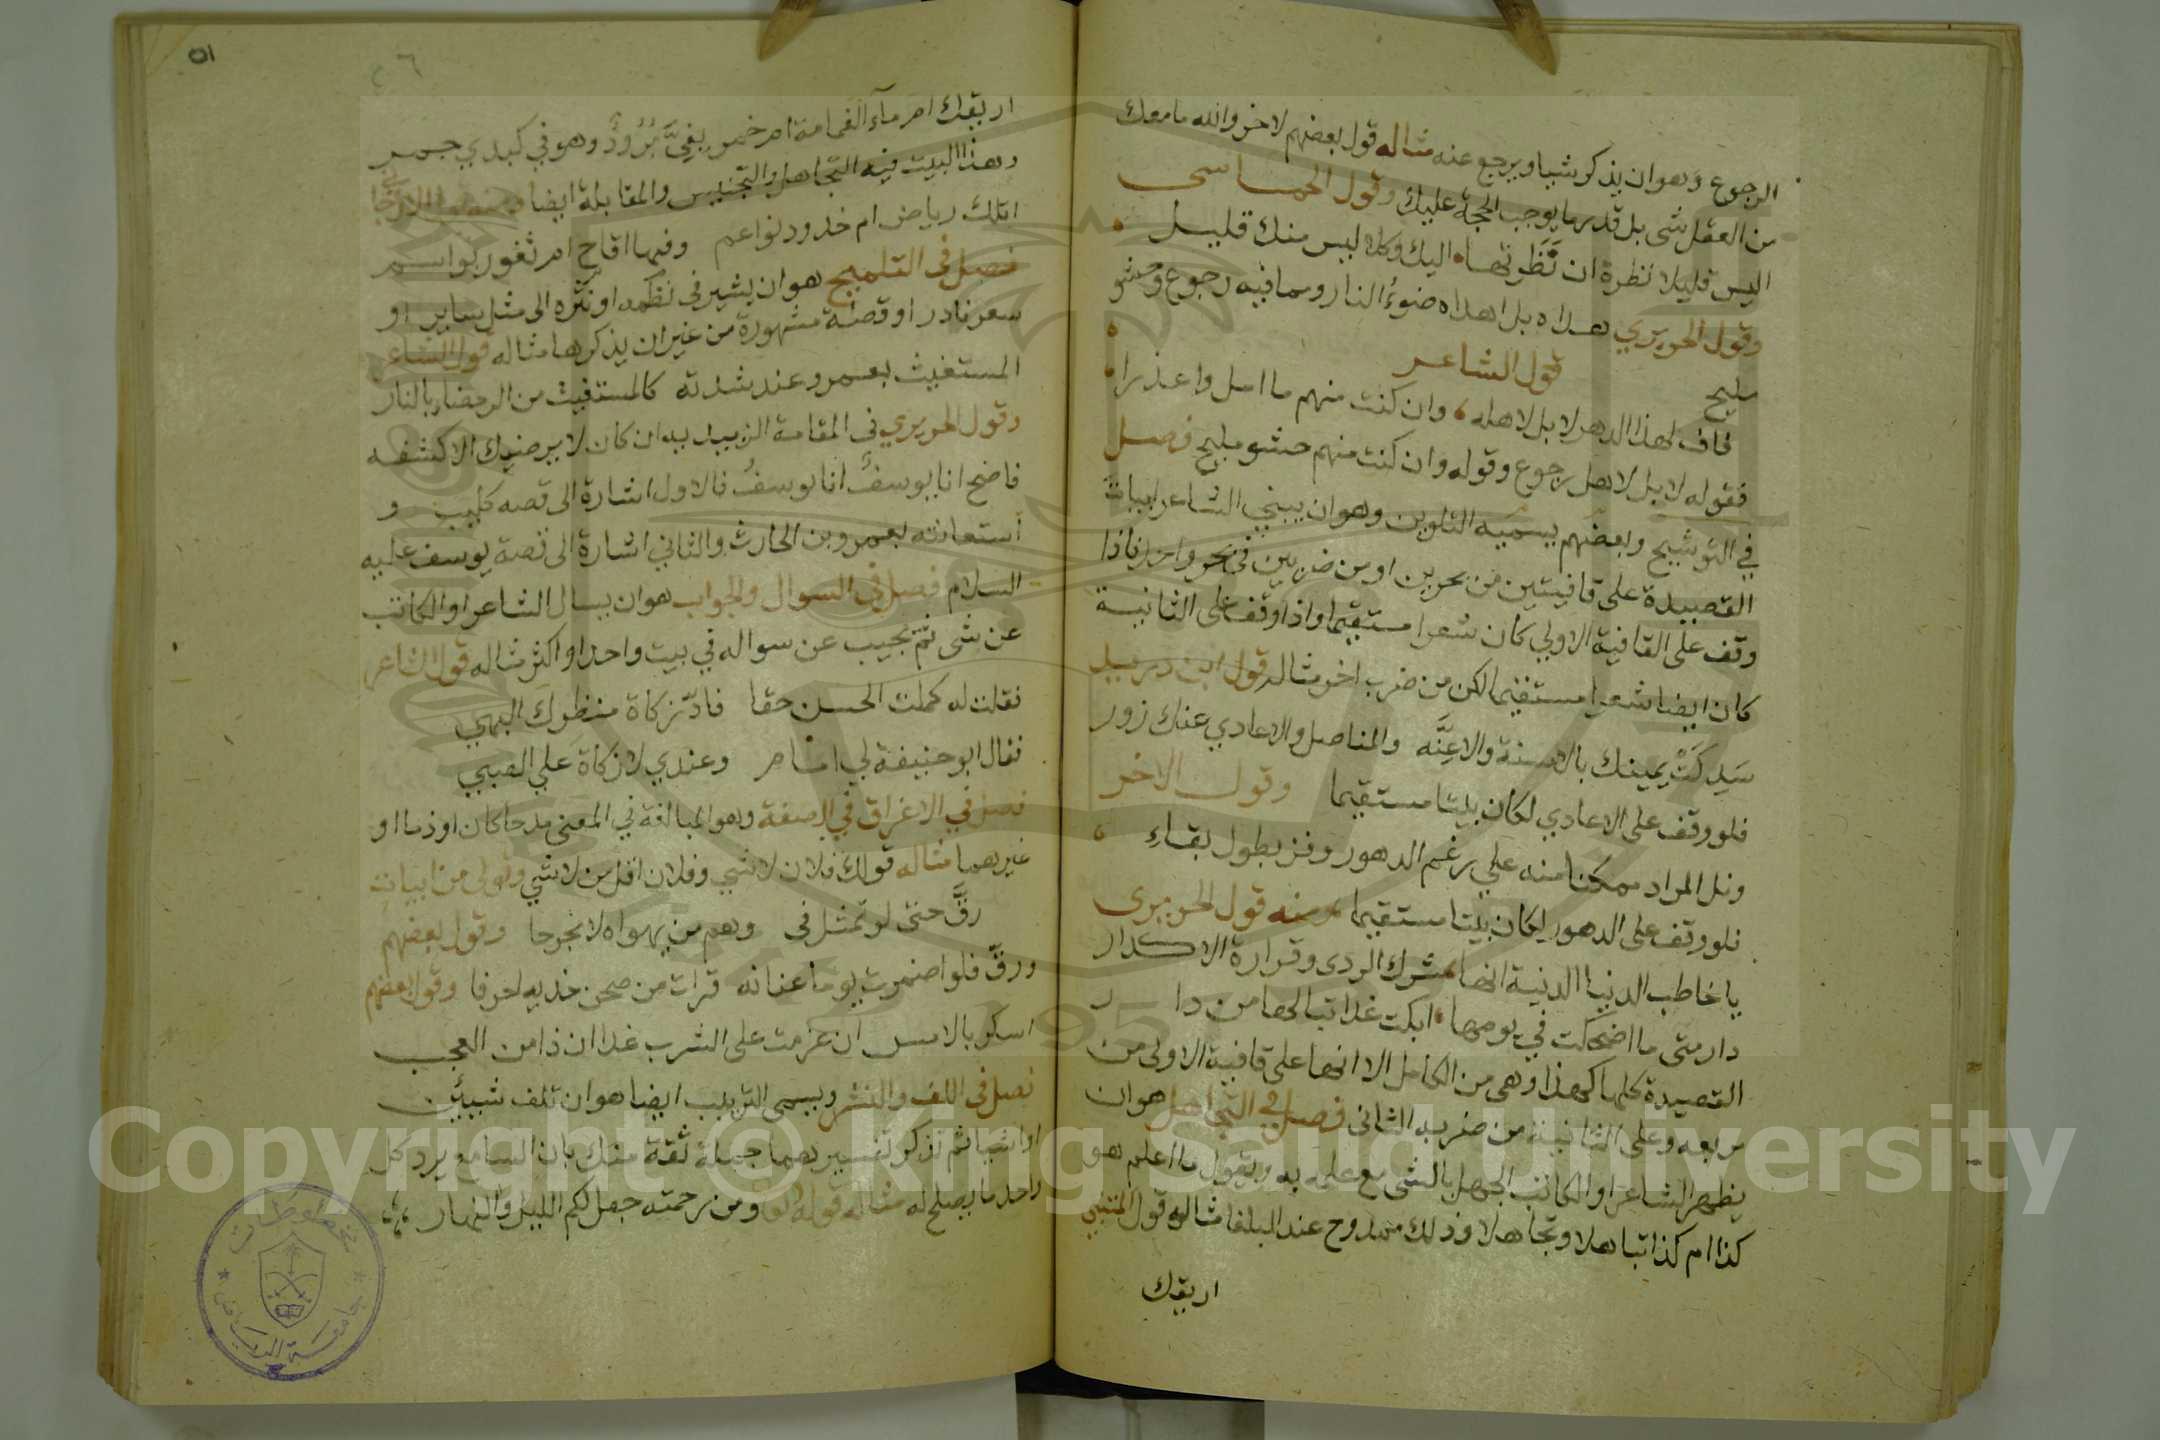 الرجوع وهو ان يذكر شيا ويرجع عنه مثاله قول بعضهم لاخر والله ما معك
من العقل شى بل قدر ما يوجب الحجة عليك وقول الحماسى
اليس قليلا نظرة ان نَظَرتها اليك وكلا ليس منك قليل
وقول الحريري هداه بل اهداه ضوءُ النار ومما فيه رجوع وحشو
مليح قول الشاعر
فاف لهذا الدهر لا بل لاهله وان كنت منهم ما امل واعذرا
فقوله لا بل لاهل رجوع وقوله وان كنت منهم حشو مليح فصل
في التوشيح وبعضهم يسميه التلوين وهو ان يبني الشاعر ابيات
القصيدة على قافيتين من بحرين او من ضربين في بحر واحد فاذا
وقف على القافية الاولي كان شعرا مستقيما واذا وقف على الثانية
كان ايضا شعرا مستقيما لكن من ضرب اخر مثاله قول ابن دريد
سَدِكَتْ يمينك بالاسنة والاعِنَّه والمناصل والاعادي عنك زور
فلو وقف على الاعادي لكان بيتا مستقيما وقول الاخر
ونل المراد ممكنا منه علي رغم الدهور وفز بطول بقاءِ
فلو وقف على الدهور لكان بيتا مستقيما ومنه قول الحريرى
يا خاطب الدنيا الدنية انها شرك الردى وقرارة الاكدار
دار متى ما اضحكت في يومها ابكت غدا تبا لها من دار
القصيدة كلها كهذا وهى من الكامل الا انها على قافية الاولى من
مرابعه وعلى الثانية من ضربه الثانى فصل في التجاهل هو ان
يظهر الشاعر او الكاتب الجهل بالشى مع علمه به ويقول ما اعلم هو
كذا ام كذا تباهلا وتجاهلا وذلك ممدوح عند البلغا مثاله قول المتنبي
اريقك
٥١
٢٦
اريقك ام مآء الغمامة ام خمر بفِيَّ بَرُودٌ وهو في كبدي جمر
وهذا البيت فيه التجاهل والتجنيس والمقابلة ايضا
اتلك رياض ام خدود نواعم وفيها اقاح ام ثغور بواسم
فصل فى التلميح هو ان يشير فى نظمه او نثره الى مثل ساير او
شعر نادر او قصة مشهورة من غير ان يذكرها مثاله قول الشاعر
المستغيث بعمرو عند شدته كالمستغيث من الرمضاء بالنار
وقول الحريري فى المقامة الزبيديه ان كان لا يرضيك الا كشفه
فاضح انا يوسفٌ انا يوسفُ فالاول اشارة الى قصه كليب و
استعانته بعمرو بن الحارث والثاني اشارة الى قصة يوسف عليه
السلام فصل في السوال والجواب هو ان يسال الشاعر او الكاتب
عن شى ثم يجيب عن سواله في بيت واحد او اكثر مثاله قول الشاعر
فقلت له كملت الحسن حقا فادّ زكاة منظرك البهي
فقال ابو حنيفة لي امام وعندي لا زكاة علي الصبي
فصل في الاغراق في الصفة وهو المبالغة في المعنى مدحا كان او ذما او
غيرهما مثاله قولك فلان لا شي وفلان اقل من لا شي وقولى من ابيات
رقَّ حتى لو تمثل فى وهم من يهواه لانجرحا وقول بعضهم
ورقّ فلو اضمرت يوما عنانه قرات من صحن خديه احرفا وقول بعضهم
اسكر بالامس ان عزمت على الشرب غدا ان ذا من العجب
فصل فى اللف والنشر ويسمى الترتيب ايضا هو ان تلف شييين
او اشيا ثم تذكر تفسيرهما جملة ثقة منك بان السامع يرد كل
واحد ما يصلح له مثاله قوله تعا ومن رحمته جعل لكم الليل والنهار
مخطوطات
جامعة الرياض
Copyright © King Saud University